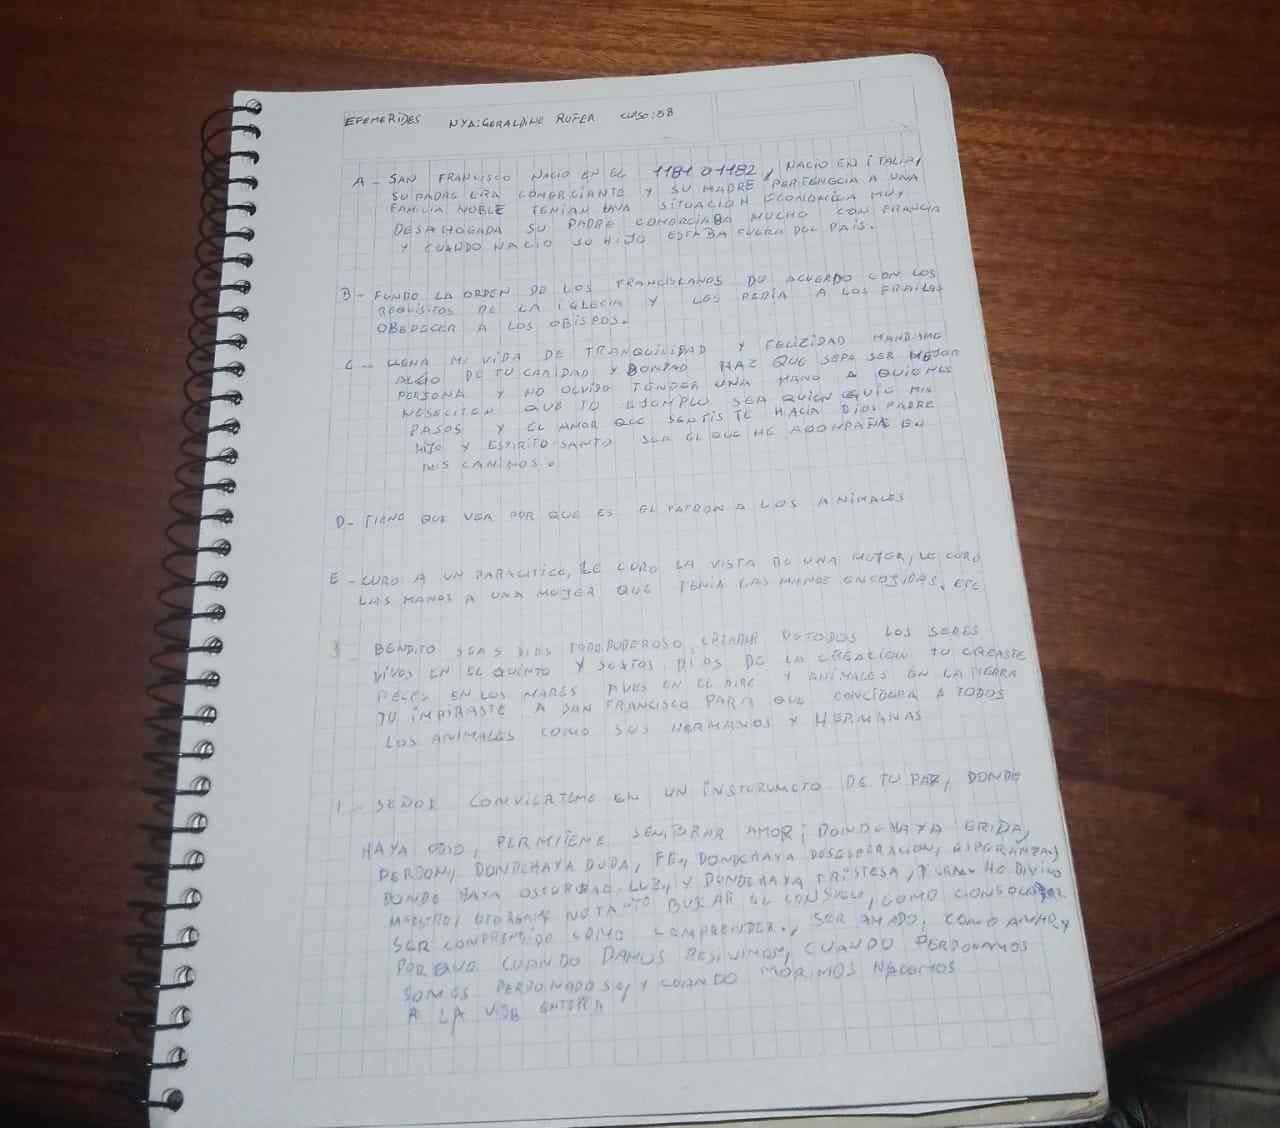 EFEMERIDES NYA:GERALDINE ROTER CURSO:8B
A - SAN FRANCISCO NACIO EN EL 1181 O 1182, NACIO EN ITALIA,
SU PADRE ERA COMERCIANTE Y SU MADRE PERTENECIA A UNA
FAMILIA NOBLE TENIAN UNA SITUACION ECONOMICA MUY
DESAHOGADA SU PADRE COMERCIABA MUCHO CON FRANCIA
Y CUANDO NACIO SU HIJO ESTABA FUERA DEL PAIS.
B - FUNDO LA ORDEN DE LOS FRANCISCANOS DE ACUERDO CON LOS
REQUISITOS DE LA IGLECIA Y LES PEDIA A LOS FRAILES
OBEDECER A LOS OBISPOS.
C - LLENA MI VIDA DE TRANQUILIDAD Y FELIZIDAD MANDAME
ALGO DE TU CARIDAD Y BONDAD HAZ QUE SEPA SER MEJOR
PERSONA Y NO OLVIDE TENDER UNA MANO A QUIENES
NESECITEN QUE TU EJEMPLO SEA QUIEN GUIE MIS
PASOS Y EL AMOR QUE SENTISTE HACIA DIOS PADRE
HIJO Y ESPIRITO SANTO SER EL QUE ME ACOMPAÑE EN
MIS CAMINOS.
D - TIENE QUE VER POR QUE ES EL PATRON A LOS ANIMALES
E - CURO A UN PARALITICO, LE CURO LA VISTA DE UNA MUJER, LE CURO
LAS MANOS A UNA MUJER QUE TENIA LAS MANOS ENCOJIDAS. ETC
BENDITO SEAS DIOS TODOPODEROSO, CREADOR DE TODOS LOS SERES
VIVOS EN EL QUINTO Y SEXTOS DIAS DE LA CREACION TU CREASTE
PECES EN LOS MARES AVES EN EL AIRE Y ANIMALES EN LA TIERRA
TU IMPIRASTE A SAN FRANCISCO PARA QUE CONCIDERA A TODOS
LOS ANIMALES COMO SUS HERMANOS Y HERMANAS
1 - SEÑOR CONVIERTEME EN UN INSTRUMETO DE TU PAZ, DONDE
HAYA ODIO, PERMITEME SEMBRAR AMOR; DONDEHAYA ERIDA,
PERDON, DONDEHAYA DUDA, FE, DONDEHAYA DESESPERACION, ESPERANZA,
DONDE HAYA OSCURIDAD, LUZ, Y DONDEHAYA TRISTESA, DIVINO
MAESTRO, OTORGAME NO TANTO BUSCAR EL CONSUELO, COMO CONSOLAR
SER COMPRENDIDO COMO COMPRENDER, SER AMADO, COMO AMAR, Y
PORQUE CUANDO DAMOS RESIVIMOS, CUANDO PERDONAMOS
SOMOS PERDONADOS, Y CUANDO MORIMOS NACEMOS
A LA VIDA